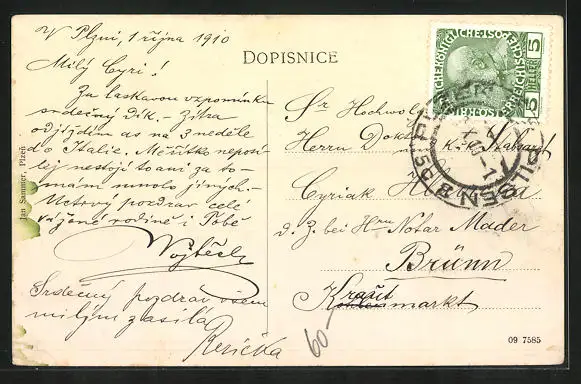 V Plzni, 1 října 1910
DOPISNICE
Milý Cyri!
Za laskavou vzpomínku
srdečný dík. - Zítra
odjíždím as na 3 neděle
do Italie. Měřítko neposí-
lej nestojí to ani za to -
mám mnoho jiných. -
Uctivý pozdrav celé
vážené rodině i Tobě
Vojtěch
Srdečný pozdrav všem
milým zasílá
Růžička
Jan Sammer, Plzeň
Sr Hochwolg
Herrn Doktor
Cyriak
d. Z. bei Hrn Notar Mader
Brünn
Krautmarkt
60-
09 7585
5 HELLER 5
PILSEN